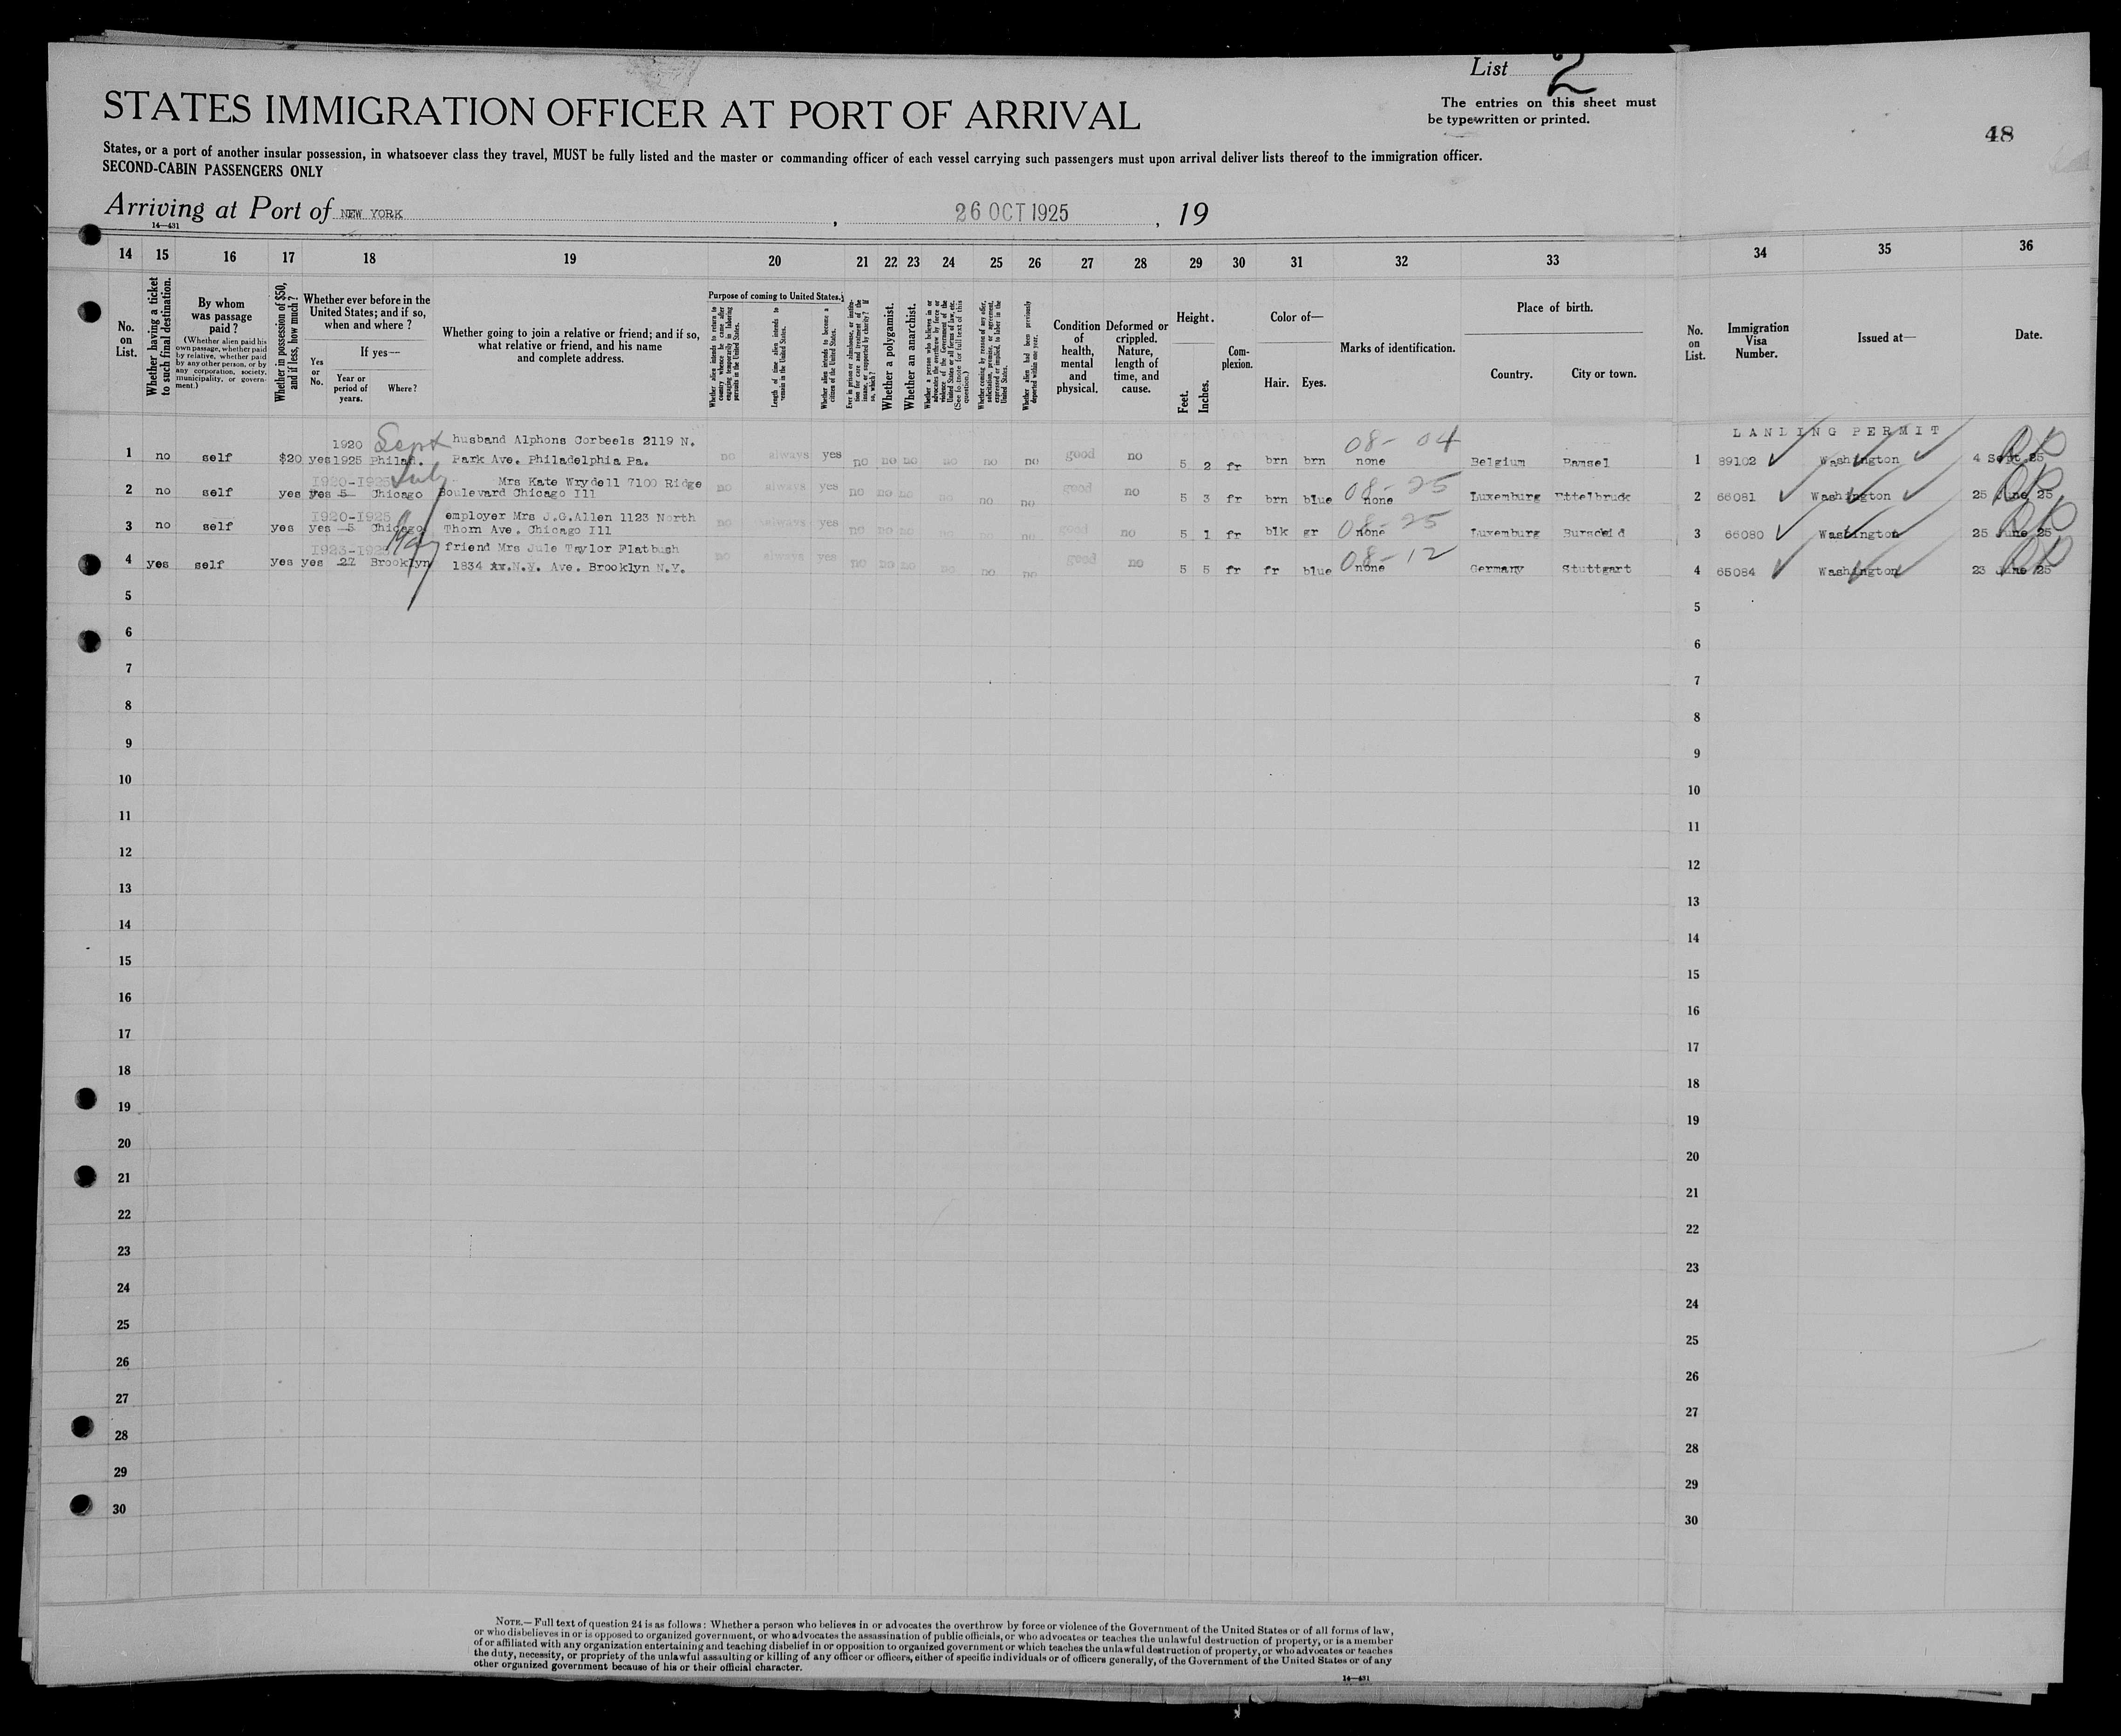 List 2
The entries on this sheet must
be typewritten or printed.
48
STATES IMMIGRATION OFFICER AT PORT OF ARRIVAL
States, or a port of another insular possession, in whatsoever class they travel, MUST be fully listed and the master or commanding officer of each vessel carrying such passengers must upon arrival deliver lists thereof to the immigration officer.
SECOND-CABIN PASSENGERS ONLY
Arriving at Port of NEW YORK , 26 OCT 1925 , 19
14—431
14 15 16 17 18 19 20 21 22 23 24 25 26 27 28 29 30 31 32 33 34 35 36
No. on List.
Whether having a ticket to such final destination.
By whom was passage paid?
(Whether alien paid his own passage, whether paid by relative, whether paid by any other person, or by any corporation, society, municipality, or government.)
Whether in possession of $50, and if less, how much?
Whether ever before in the United States; and if so, when and where?
Yes or No.
If yes—
Year or period of years.
Where?
Whether going to join a relative or friend; and if so, what relative or friend, and his name and complete address.
Purpose of coming to United States.
Whether alien intends to return to country whence he came after engaging temporarily in laboring pursuits in the United States.
Length of time alien intends to remain in the United States.
Whether alien intends to become a citizen of the United States.
Ever in prison or almshouse, or institution for care and treatment of the insane, or supported by charity? If so, which?
Whether a polygamist.
Whether an anarchist.
Whether a person who believes in or advocates the overthrow by force or violence of the Government of the United States or all forms of law, etc. (See footnote for full text of this question.)
Whether coming by reason of any offer, solicitation, promise, or agreement, expressed or implied, to labor in the United States.
Whether alien had been previously deported within one year.
Condition of health, mental and physical.
Deformed or crippled. Nature, length of time, and cause.
Height.
Feet.
Inches.
Complexion.
Color of—
Hair. Eyes.
Marks of identification.
Place of birth.
Country. City or town.
No. on List.
Immigration Visa Number.
Issued at—
Date.
LANDING PERMIT
1920 Sept husband Alphons Corbeels 2119 N. 08- 04
1 no self $20 yes 1925 Philad. Park Ave. Philadelphia Pa. no always yes no no no no no no good no 5 2 fr brn brn none Belgium Ramsel 1 89102 Washington 4 Sept 25
I920-I925 July Mrs Kate Wrydell 7100 Ridge 08- 25
2 no self yes yes 5 Chicago Boulevard Chicago Ill no always yes no no no no no no good no 5 3 fr brn blue none Luxemburg Ettelbruck 2 66081 Washington 25 June 25
I920-I925 employer Mrs J.G.Allen 1123 North 08- 25
3 no self yes yes 5 Chicago Thorn Ave. Chicago Ill no always yes no no no no no no good no 5 1 fr blk gr none Luxemburg Burscheid 3 66080 Washington 25 June 25
I923-I925 May friend Mrs Jule Taylor Flatbush 08- 12
4 yes self yes yes 27 Brooklyn 1834 N.Y. Ave. Brooklyn N.Y. no always yes no no no no no no good no 5 5 fr fr blue none Germany Stuttgart 4 65084 Washington 23 June 25
5 5
6 6
7 7
8 8
9 9
10 10
11 11
12 12
13 13
14 14
15 15
16 16
17 17
18 18
19 19
20 20
21 21
22 22
23 23
24 24
25 25
26 26
27 27
28 28
29 29
30 30
NOTE.—Full text of question 24 is as follows: Whether a person who believes in or advocates the overthrow by force or violence of the Government of the United States or of all forms of law,
or who disbelieves in or is opposed to organized government, or who advocates the assassination of public officials, or who advocates or teaches the unlawful destruction of property, or is a member
of or affiliated with any organization entertaining and teaching disbelief in or opposition to organized government or which teaches the unlawful destruction of property, or who advocates or teaches
the duty, necessity, or propriety of the unlawful assaulting or killing of any officer or officers, either of specific individuals or of officers generally, of the Government of the United States or of any
other organized government because of his or their official character.
14—431